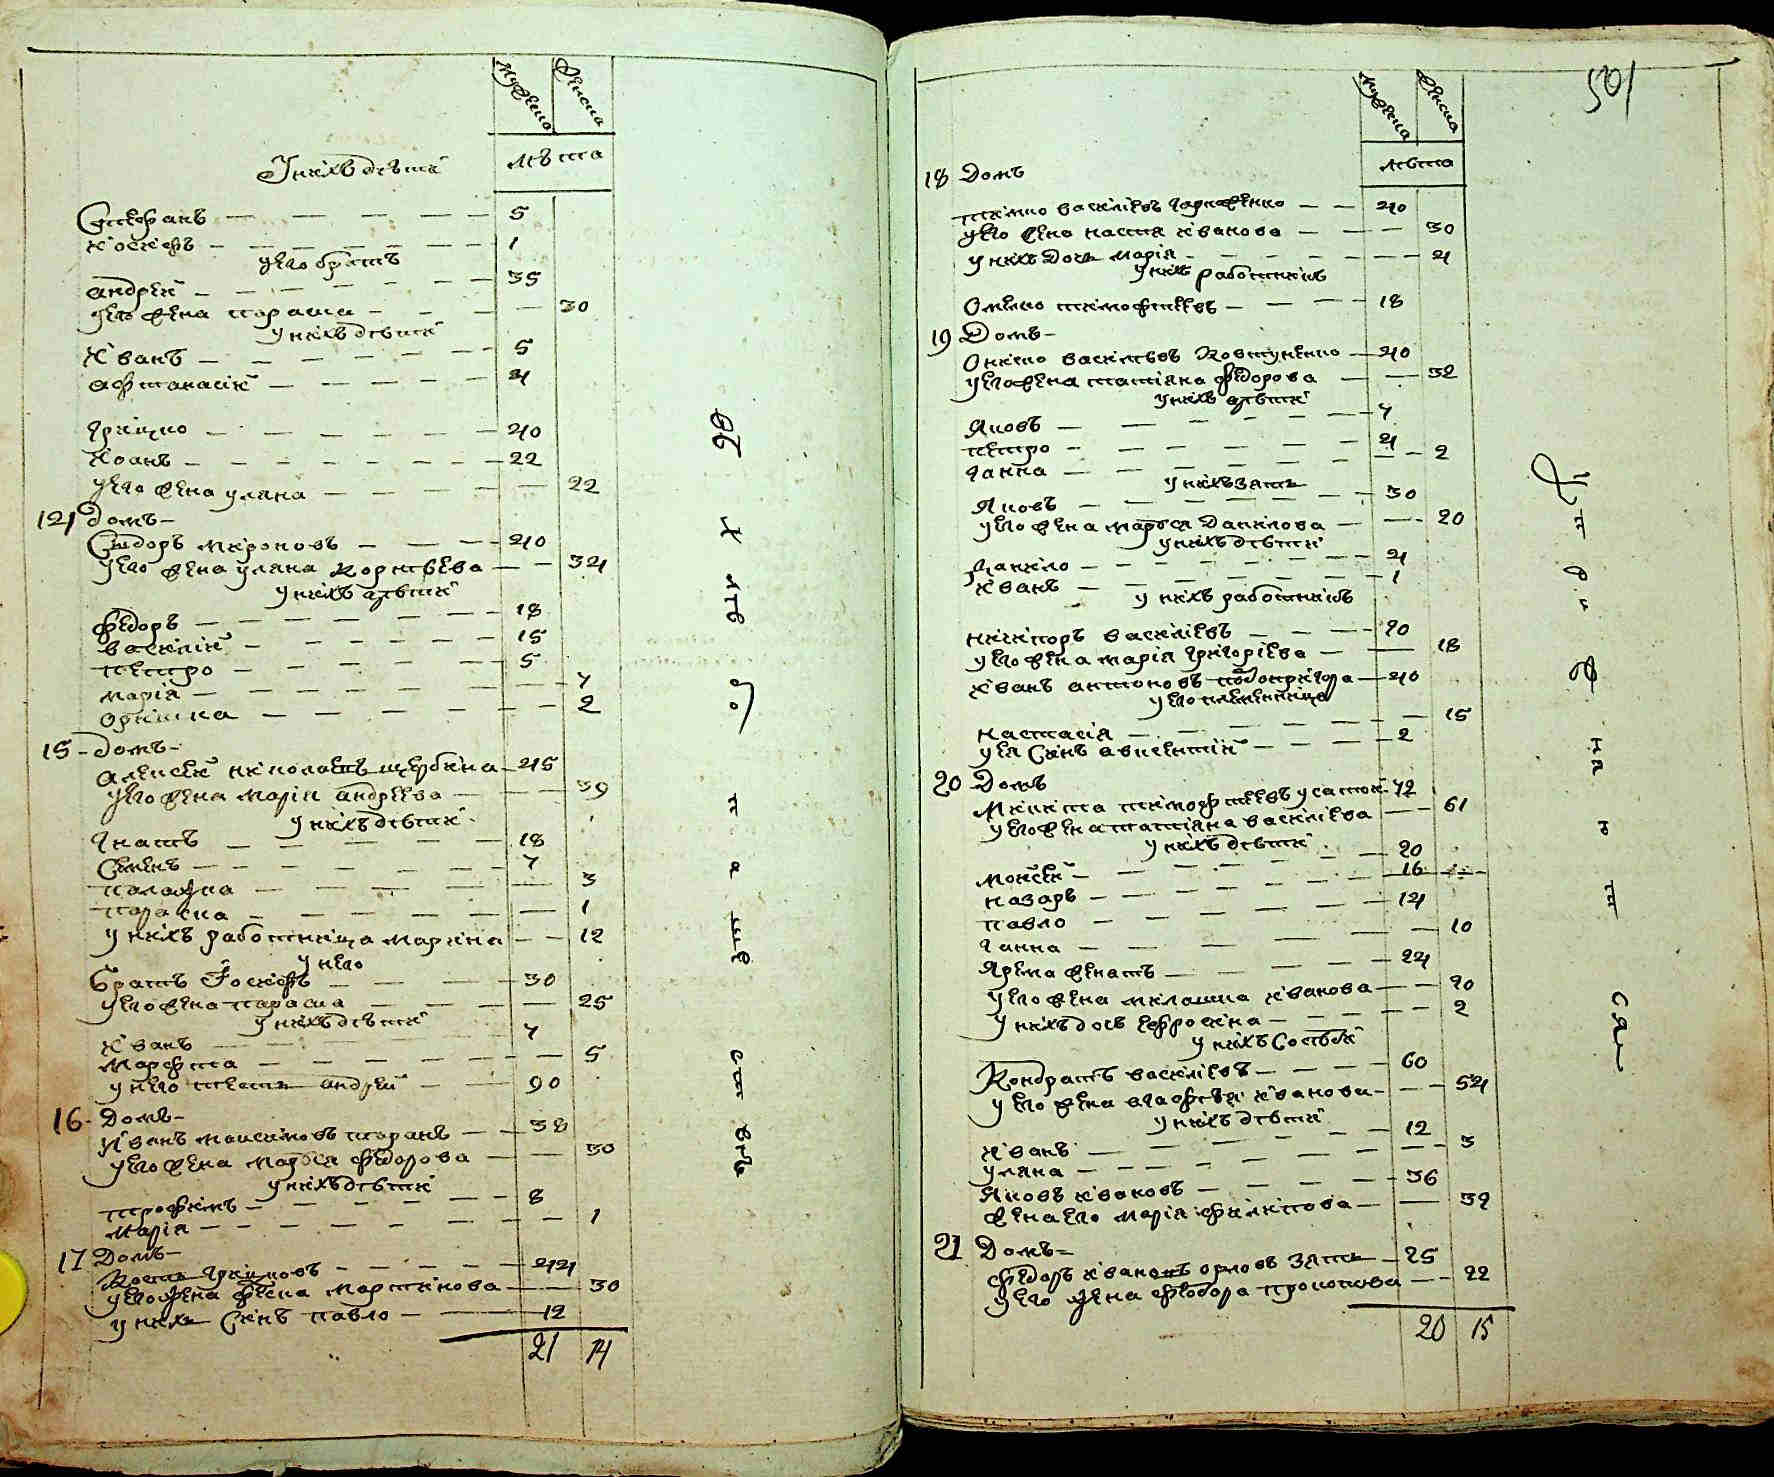 мужеска женска
лѣта
У нихъ дѣти
Стефанъ — 5
Иосифъ — 1
его братъ
андрей — 35
его жена параска — 30
У нихъ дѣти
Иванъ — 5
афтанасий — 4
Грицко — 40
Иванъ — 22
его жена уляна — 22
14 домъ
Сидоръ мироновъ — 40
его жена уляна корнѣева — 34
у нихъ дѣти
федоръ — 18
василий — 15
петро — 5
мария — 7
оришка — 2
15 домъ
алексѣй николаевъ щербина — 45
его жена мария андреева — 39
у нихъ дѣти
Игнатъ — 18
Семенъ — 7
палажка — 3
параска — 1
у нихъ работница марина — 12
у него
братъ Иосифъ — 30
его жена параска — 25
у нихъ дѣти
Иванъ — 7
марфта — 5
у него тесть андрей — 90
16 Домъ
Иванъ максимовъ таранъ — 38
его жена марфа федорова — 30
у нихъ дѣти
трофимъ — 8
мария — 1
17 Домъ
Коста грицковъ — 44
его жена фекла мартинова — 30
у нихъ синъ павло — 12
21 14
501
мужеска женска
лѣта
18 Домъ
тимко василиевъ гарженко — 40
его жена настя иванова — 30
у нихъ дочь мария — 4
у нихъ работникъ
Омелко тимофтиевъ — 18
19 Домъ
Ониско василиевъ Ковтуненко — 40
его жена татияна федорова — 32
у нихъ дѣти
Яковъ — 7
петро — 4
ганна — 2
у нихъ зять
Яковъ — 30
его жена маруся Данилова — 20
у нихъ дѣти
Данило — 4
Иванъ — 1
у нихъ работникъ
никипоръ василиевъ — 20
его жена мария григориева — 18
Иванъ антоновъ — 40
его племѣнница
настасия — 15
ея Синъ авксентий — 2
20 Домъ
Микита тимофтиевъ усатой — 72
его жена татияна василиева — 61
у нихъ дѣти
мойсей — 20
назаръ — 16
павло — 14
ганна — 10
Ярема женатъ — 24
его жена мелашка иванова — 20
у нихъ дочь ефросина — 2
у нихъ Сосѣди
Кондратъ василиевъ — 60
его жена агафтия иванова — 54
у нихъ дѣти
Иванъ — 12
уляна — 3
Яковъ ивановъ — 36
жена его мария филипова — 32
21 Домъ
федоръ ивановъ орловъ зять — 25
его жена федора прокопова — 22
20 15